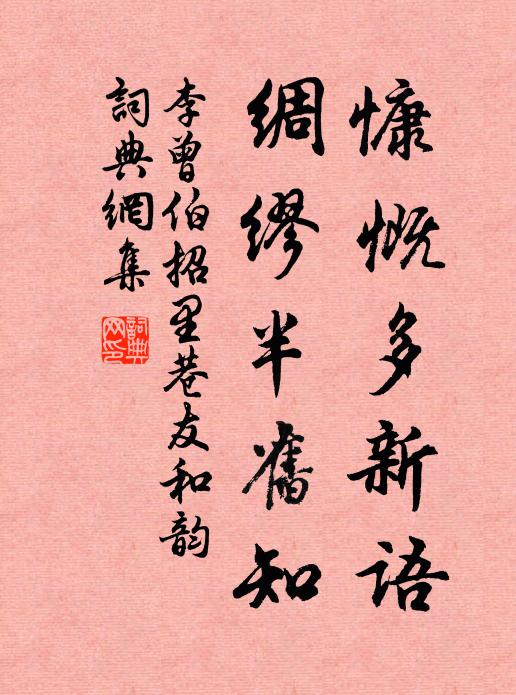 慷慨多新語
綢繆半舊知
李曾伯招里巷友和韵
詞典網集
詞典网印